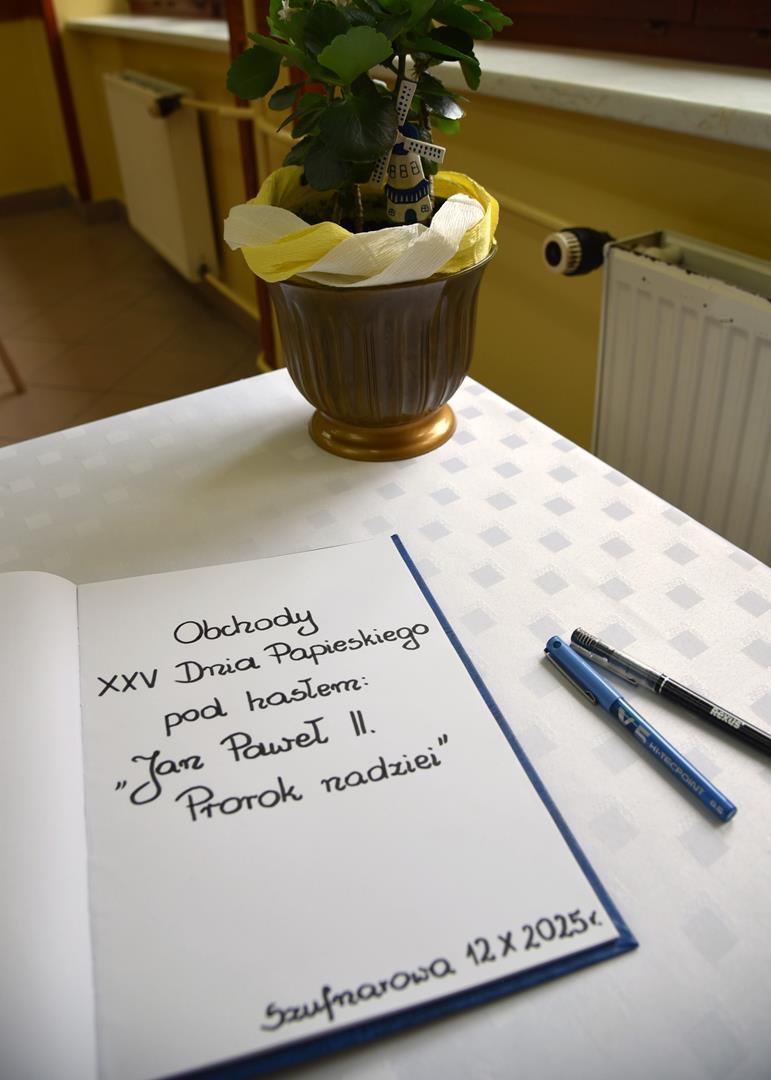 Obchody
XXV Dnia Papieskiego
pod hasłem:
„Jan Paweł II.
Prorok nadziei”
Szufnarowa 12 X 2025r.
V5 HI-TECPOINT 0.5
Rexus